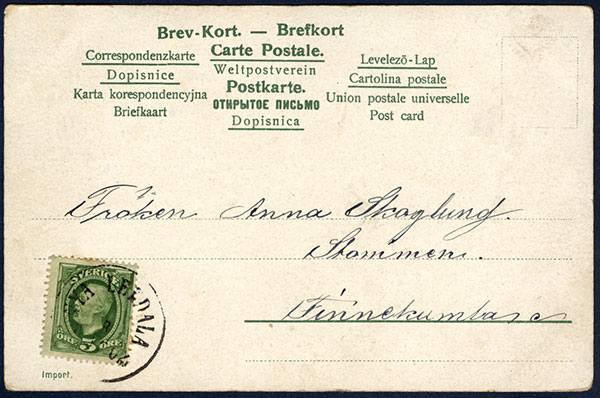 Brev-Kort. — Brefkort
Correspondenzkarte
Dopisnice
Karta korespondencyjna
Briefkaart
Carte Postale.
Weltpostverein
Postkarte.
ОТКРЫТОЕ ПИСЬМО
Dopisnica
Levelező-Lap
Cartolina postale
Union postale universelle
Post card
Fröken Anna Skoglund.
Stommen.
Finnekumla
SVERIGE
5
ÖRE ÖRE
LEDALA
Import.